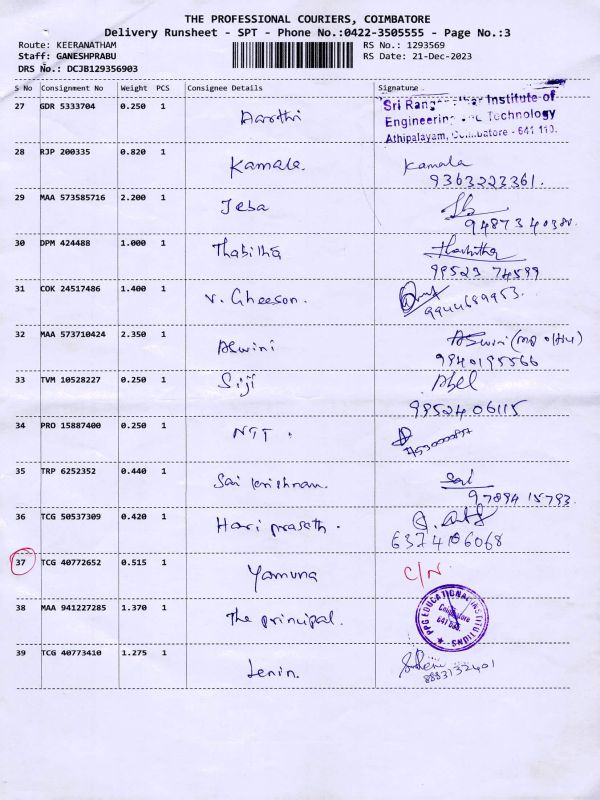 THE PROFESSIONAL COURIERS, COIMBATORE
Delivery Runsheet - SPT - Phone No.:0422-3505555 - Page No.:3
Route: KEERANATHAM RS No.: 1293569
Staff: GANESHPRABU RS Date: 21-Dec-2023
DRS No.: DCJB129356903
S No Consignment No Weight PCS Consignee Details Signature
27 GDR 5333704 0.250 1 Aarthi
Institute of
Engineering Technology
Athipalayam, Coimbatore - 641 110.
28 RJP 200335 0.820 1 Kamala. Kamala
9363223361.
29 MAA 573585716 2.200 1 Jeba
30 DPM 424488 1.000 1 Thabitha
99523 74599
31 COK 24517486 1.400 1 V. Gheeson.
9944689953.
32 MAA 573710424 2.350 1 Aswini Aswini
9940195566
33 TVM 10528227 0.250 1 Siji Abel
9952406115
34 PRO 15887400 0.250 1 NTT.
35 TRP 6252352 0.440 1 Sai krishnan. Sai
97894 15793.
36 TCG 50537309 0.420 1 Hari prasath.
6374106068
37 TCG 40772652 0.515 1 Yamuna C/N
38 MAA 941227285 1.370 1 The principal.
PPG EDUCATIONAL INSTITUTIONS
Coimbatore
641 035.
39 TCG 40773410 1.275 1 Lenin.
8883132401